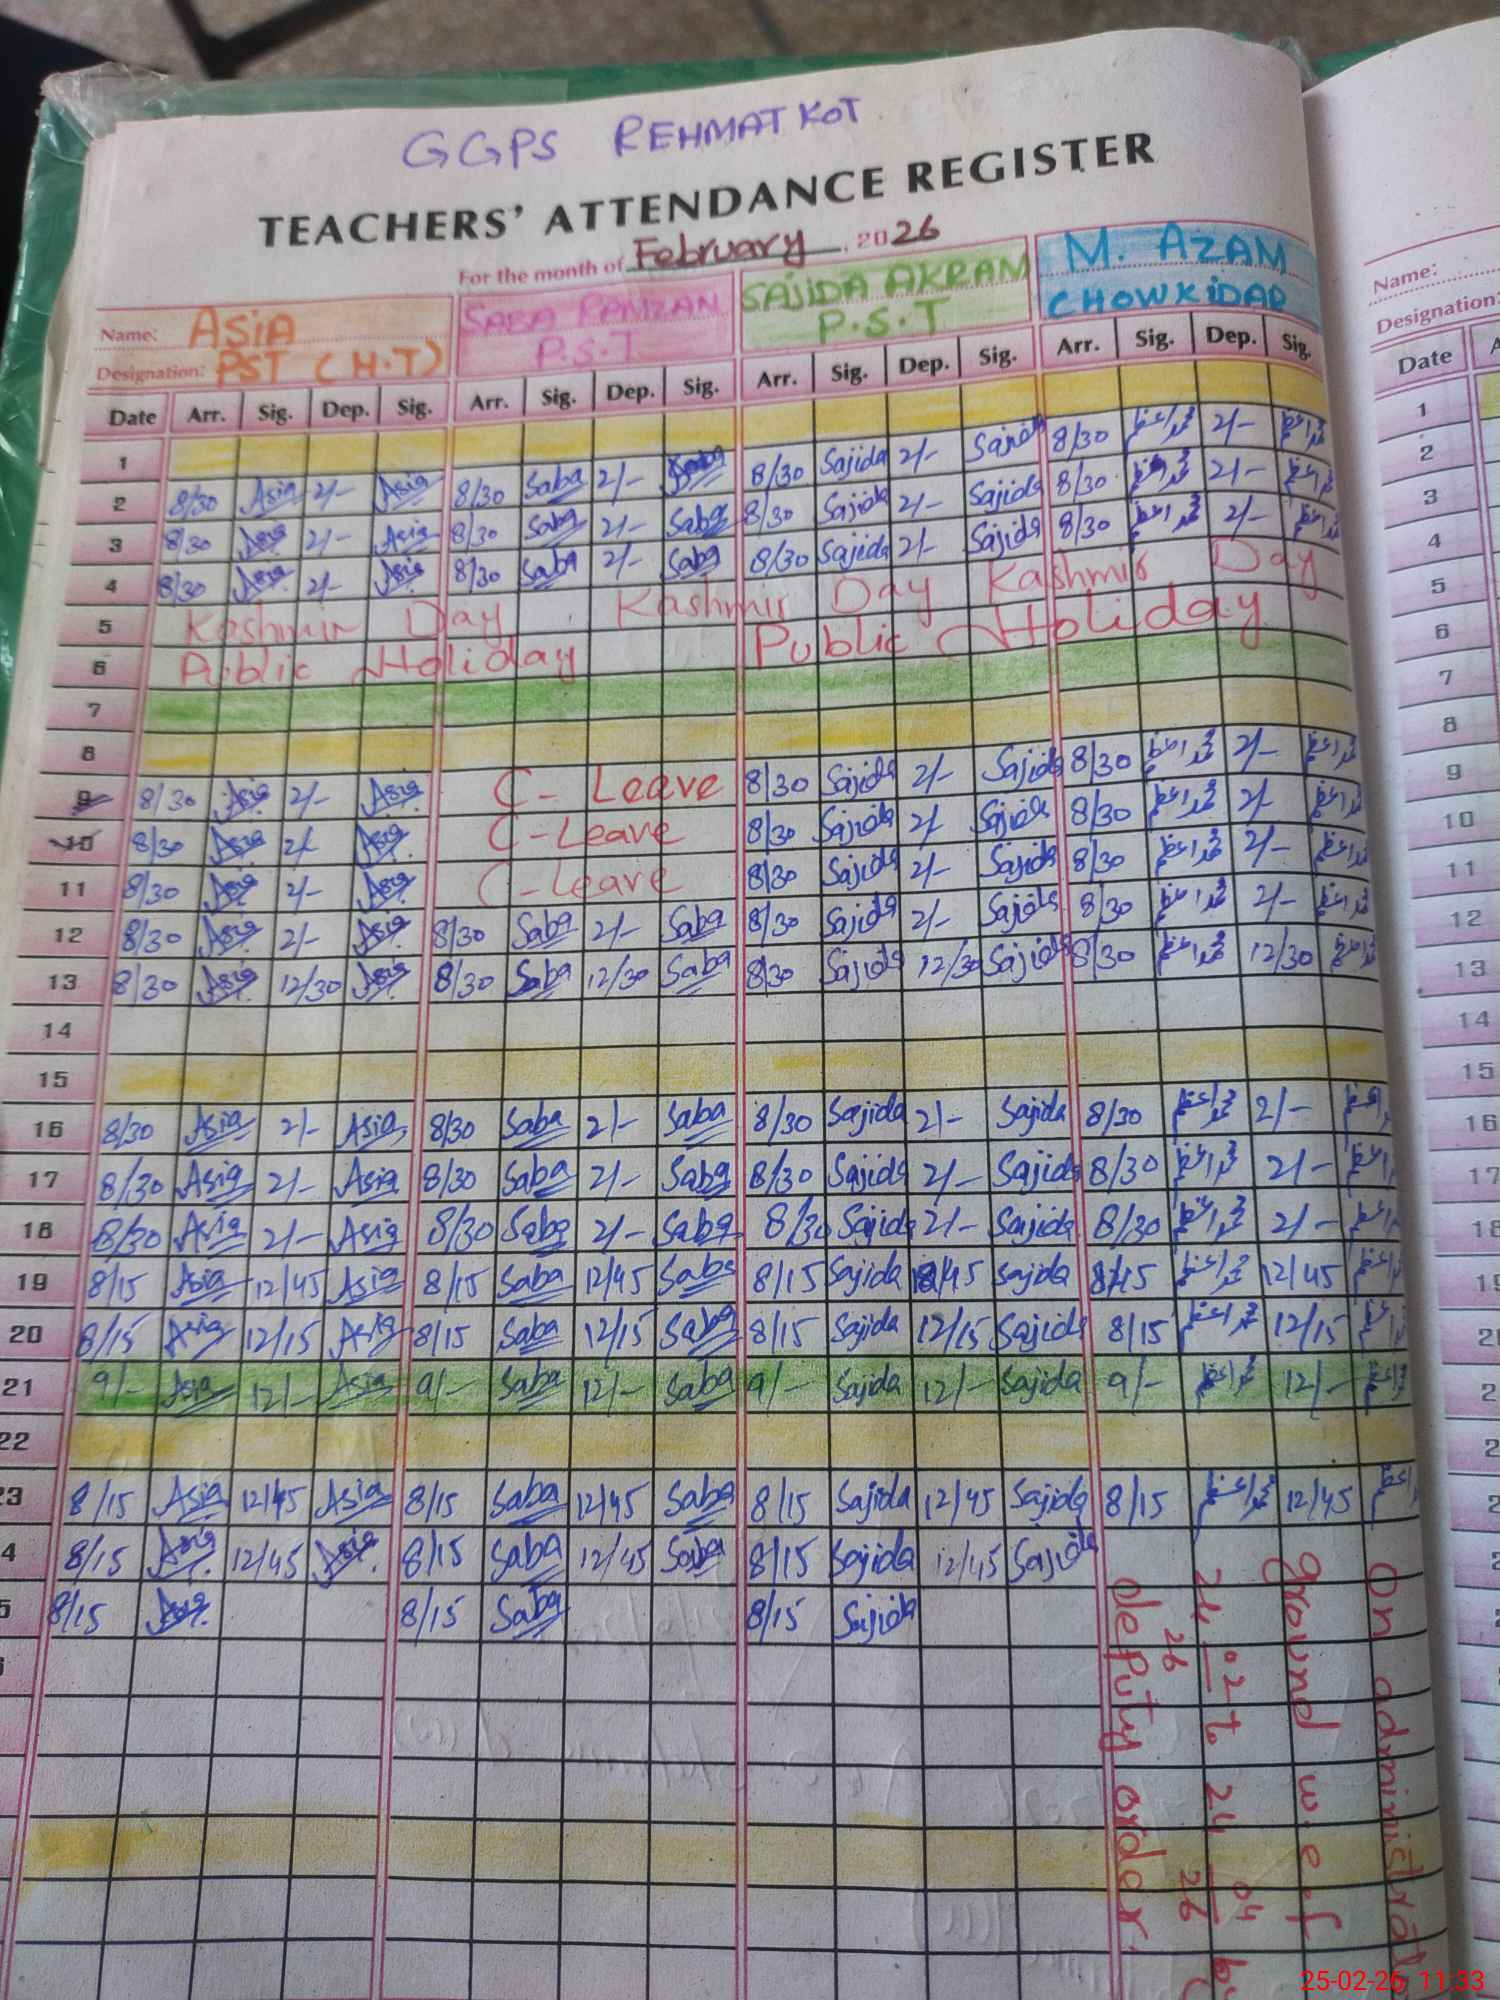 GGPS REHMAT KOT
TEACHERS' ATTENDANCE REGISTER
For the month of February, 2026
Name: ASIA SABA RAMZAN SAJIDA AKRAM M. AZAM
Designation: PST (H.T) P.S.T P.S.T CHOWKIDAR
Date Arr. Sig. Dep. Sig. Arr. Sig. Dep. Sig. Arr. Sig. Dep. Sig. Arr. Sig. Dep. Sig.
1
2 8/30 Asia 2/- Asia 8/30 Saba 2/- Saba 8/30 Sajida 2/- Sajida 8/30 محمد اعظم 2/- محمد اعظم
3 8/30 Asia 2/- Asia 8/30 Saba 2/- Saba 8/30 Sajida 2/- Sajida 8/30 محمد اعظم 2/- محمد اعظم
4 8/30 Asia 2/- Asia 8/30 Saba 2/- Saba 8/30 Sajida 2/- Sajida 8/30 محمد اعظم 2/- محمد اعظم
5 Kashmir Day Kashmir Day Kashmir Day
6 Public Holiday Public Holiday
7
8
9 8/30 Asia 2/- Asia C-Leave 8/30 Sajida 2/- Sajida 8/30 محمد اعظم 2/- محمد اعظم
10 8/30 Asia 2/- Asia C-Leave 8/30 Sajida 2/- Sajida 8/30 محمد اعظم 2/- محمد اعظم
11 8/30 Asia 2/- Asia C-Leave 8/30 Sajida 2/- Sajida 8/30 محمد اعظم 2/- محمد اعظم
12 8/30 Asia 2/- Asia 8/30 Saba 2/- Saba 8/30 Sajida 2/- Sajida 8/30 محمد اعظم 2/- محمد اعظم
13 8/30 Asia 12/30 Asia 8/30 Saba 12/30 Saba 8/30 Sajida 12/30 Sajida 8/30 محمد اعظم 12/30 محمد اعظم
14
15
16 8/30 Asia 2/- Asia 8/30 Saba 2/- Saba 8/30 Sajida 2/- Sajida 8/30 محمد اعظم 2/- محمد اعظم
17 8/30 Asia 2/- Asia 8/30 Saba 2/- Saba 8/30 Sajida 2/- Sajida 8/30 محمد اعظم 2/- محمد اعظم
18 8/30 Asia 2/- Asia 8/30 Saba 2/- Saba 8/30 Sajida 2/- Sajida 8/30 محمد اعظم 2/- محمد اعظم
19 8/15 Asia 12/45 Asia 8/15 Saba 12/45 Saba 8/15 Sajida 12/45 Sajida 8/15 محمد اعظم 12/45
20 8/15 Asia 12/15 Asia 8/15 Saba 12/15 Saba 8/15 Sajida 12/15 Sajida 8/15 محمد اعظم 12/15
21 9/- Asia 12/- Asia 9/- Saba 12/- Saba 9/- Sajida 12/- Sajida 9/- محمد اعظم 12/-
22
23 8/15 Asia 12/45 Asia 8/15 Saba 12/45 Saba 8/15 Sajida 12/45 Sajida 8/15 محمد اعظم 12/45
4 8/15 Asia 12/45 Asia 8/15 Saba 12/45 Saba 8/15 Sajida 12/45 Sajida
5 8/15 Asia 8/15 Saba 8/15 Sajida
On administra
ground w.e.f
24 02 26 t 24 04 26 by
deputy order.
Name:
Designation:
Date
1
2
3
4
5
6
7
8
9
10
11
12
13
14
15
16
17
18
25-02-26 11:33